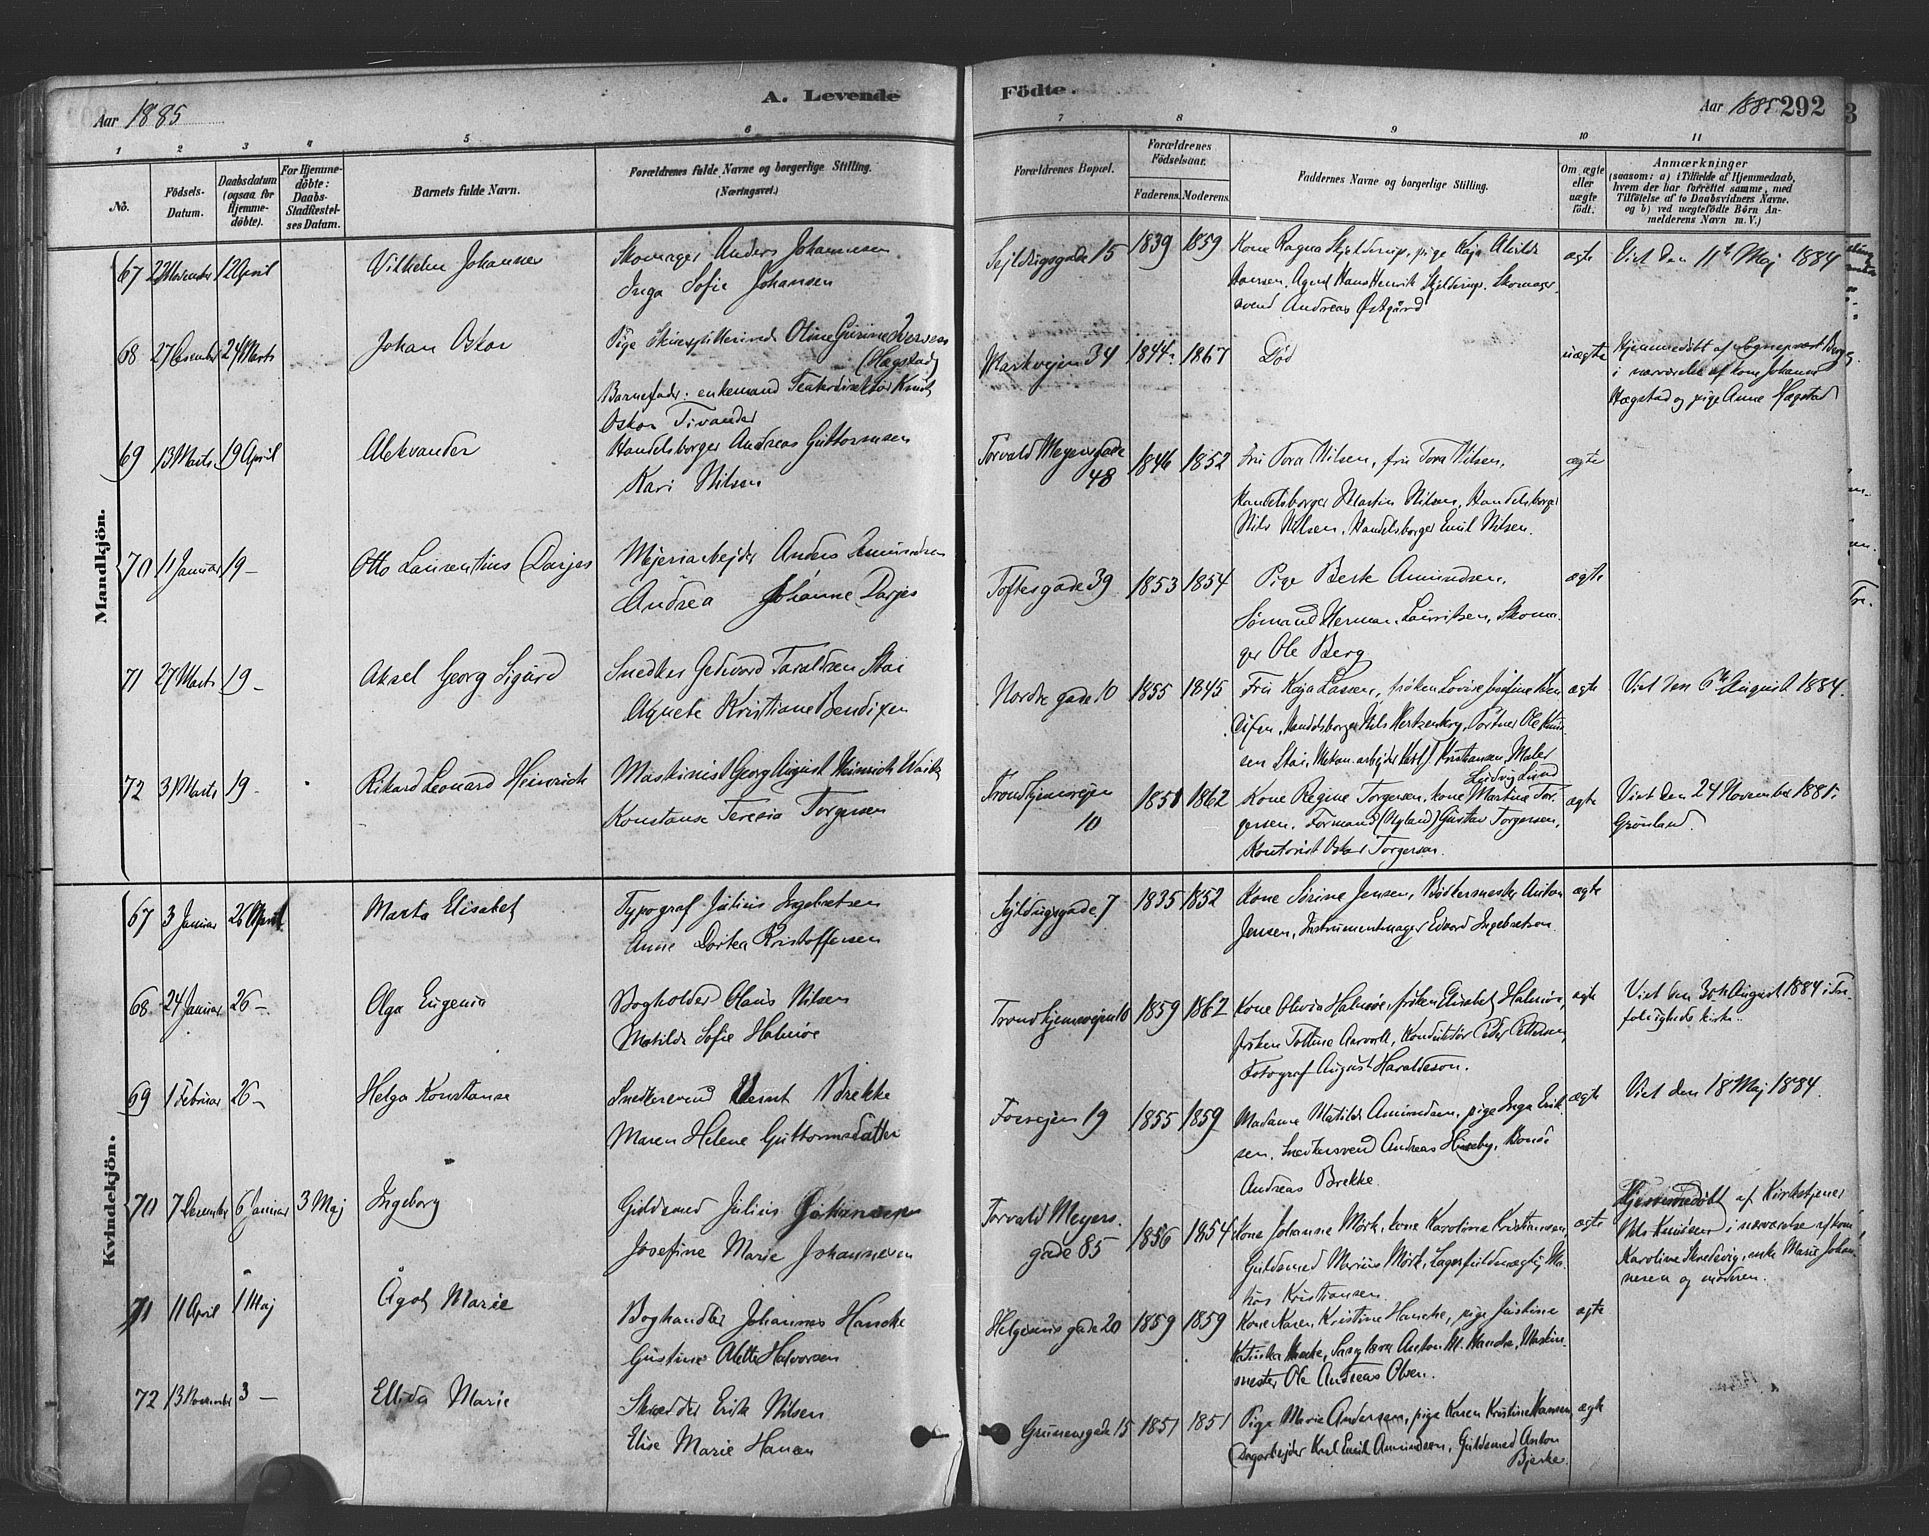 Aar 1885
A. Levende
Födte.
Aar 1885 292
3
1 2 3 4 5 6 7 8 9 10 11
No.
Födsels-
Datum.
Daabsdatum
(ogsaa for
Hjemme-
döbte).
For Hjemme-
döbte:
Daabs-
Stadfæstel-
ses Datum.
Barnets fulde Navn.
Forældrenes fulde Navne og borgerlige Stilling.
(Næringsvei.)
Forældrenes Bopæl.
Forældrenes
Födselsaar.
Faderens. Moderens.
Faddernes Navne og borgerlige Stilling.
Om ægte
eller
uægte
født.
Anmærkninger
(saasom: a) i Tilfælde af Hjemmedaab,
hvem der har forrettet samme, med
Tilføielse af to Daabsvidners Navne.
og b) ved uægtefödte Börn An-
melderens Navn m. V.)
Mandkjön.
67 12 April Vilhelm Johannes
Skomager Anders Johannesen
Inga Sofie Johansen
15 1839 1859
Kone Ragna Skjeldrup, pige Kaja Alvilda
Hansen, Agent Hans Henrik Skjeldrup, Skomager
svend Andreas Østgård
ægte
Viet den 11te Maj 1884
68 27 December 24 Marts Johan Oskar
Pige Oline
(Hagstad)
Barnefader: enkemand Teaterdirektør Knut
Oskar Tivander
Markvejen 34 1844 1867 Død uægte
Hjemmedøbt af
i nærværelse af kone Johanne
Hagstad og pige Anne Hagstad
69 13 Marts 19 April Aleksander
Handelsborger Andreas Guttormsen
Kari Nilsen
Torvald Meyersgade
48
1846 1852
Fru Tora Nilsen, fru Tora Nilsen,
Handelsborger Martin Nilsen, Handelsborger
Nils Nilsen, Handelsborger Emil Nilsen.
ægte
70 11 Januar 19 – Otto Laurentius Darjes
Mejeriarbejder Anders Amundsen
Andrea Johanne Darjes
Toftesgade 39 1853 1854
Pige Amundsen,
Sømand Herman Lauritsen, Skoma-
ger Ole Berg
ægte
71 27 Marts 19 – Aksel Georg Sigurd
Snedker Taraldsen Stai
Agnete Kristiane Bendixen
Nordre gade 10 1855 1845
Fru Kaja Lassen, frøken Lovise
Handelsborger Nils Hertzenberg, Portner Ole
sen Stai, arbejder Kristiansen, Maler
Ludvig Lund
ægte
Viet den 6te August 1884.
72 3 Marts 19 – Rikard Leonard Heinrich
Maskinist Georg August Heinrich
Konstanse Teresia Torgersen
Trondhjemsvejen
10
1851 1862
Kone Regine Torgersen, kone Martine Tor-
gersen, Formand Gustav Torgersen,
Kontorist Oskar Torgersen.
ægte
Viet den 24 November 1881.
Grønland.
Kvindekjön.
67 3 Januar 26 April Marta Elisabet
Typograf Julius Ingebretsen
Anne Dortea Kristoffersen
7 1835 1852
Kone Sørine Jensen, Bødkermester Anton
Jensen, Instrumentmager Edvard Ingebretsen
ægte
68 24 Januar 26 – Olga Eugenia
Bogholder Hans Nilsen
Matilde Sofie Halmøe
Trondhjemsvejen 10 1859 1862
Kone Halmøe, frøken Elisabet Halmøe,
frøken Aarvold, Konduktør Peder Pettersen,
Fotograf August Haraldsson.
ægte
Viet den 30te August 1884 i Tre-
foldigheds kirke.
69 1 Februar 26 – Helga Konstanse
Snedkersvend Bernt Brekke
Maren Helene Guttormsdatter
Fossvejen 19 1855 1859
Madame Matilde Amundsen, pige Inga Erik-
sen, Snedkersvend Andreas Huseby,
Andreas Brekke
ægte
Viet den 18 Maj 1884.
70 7 December 6 Januar 3 Maj Ingeborg
Guldsmed Julius Johannesen
Josefine Marie Johannesen
Torvald Meyers
gade 85
1856 1854
Kone Johanne Mørk, kone Karoline Kristiansen,
Guldsmed Marius Mørk,
Kristiansen
ægte
Hjemmedøbt af Kirketjener
Nils Knudsen i nærværelse af kone
Karoline Skredsvig, enke Marie Johan-
nesen og moderen.
71 11 April 1 Maj Ågot Marie
Boghandler Johannes Hancke
Gustine Alette Halvorsen
Helgesens gade 20 1859 1859
Kone Karen Kristine Hancke, pige Justine
Katinka Hancke, Anton M. Hancke, Maskin-
mester Ole Andreas Olsen.
ægte
72 13 November 3 – Ellida Marie
Skrædder Erik Nilsen
Elise Marie Hansen
Grünersgade 15 1851 1851
Pige Marie Andersen, pige Karen Kristine Hansen,
Dagarbejder Karl Emil Amundsen, Guldsmed Anton
Bjerke
ægte